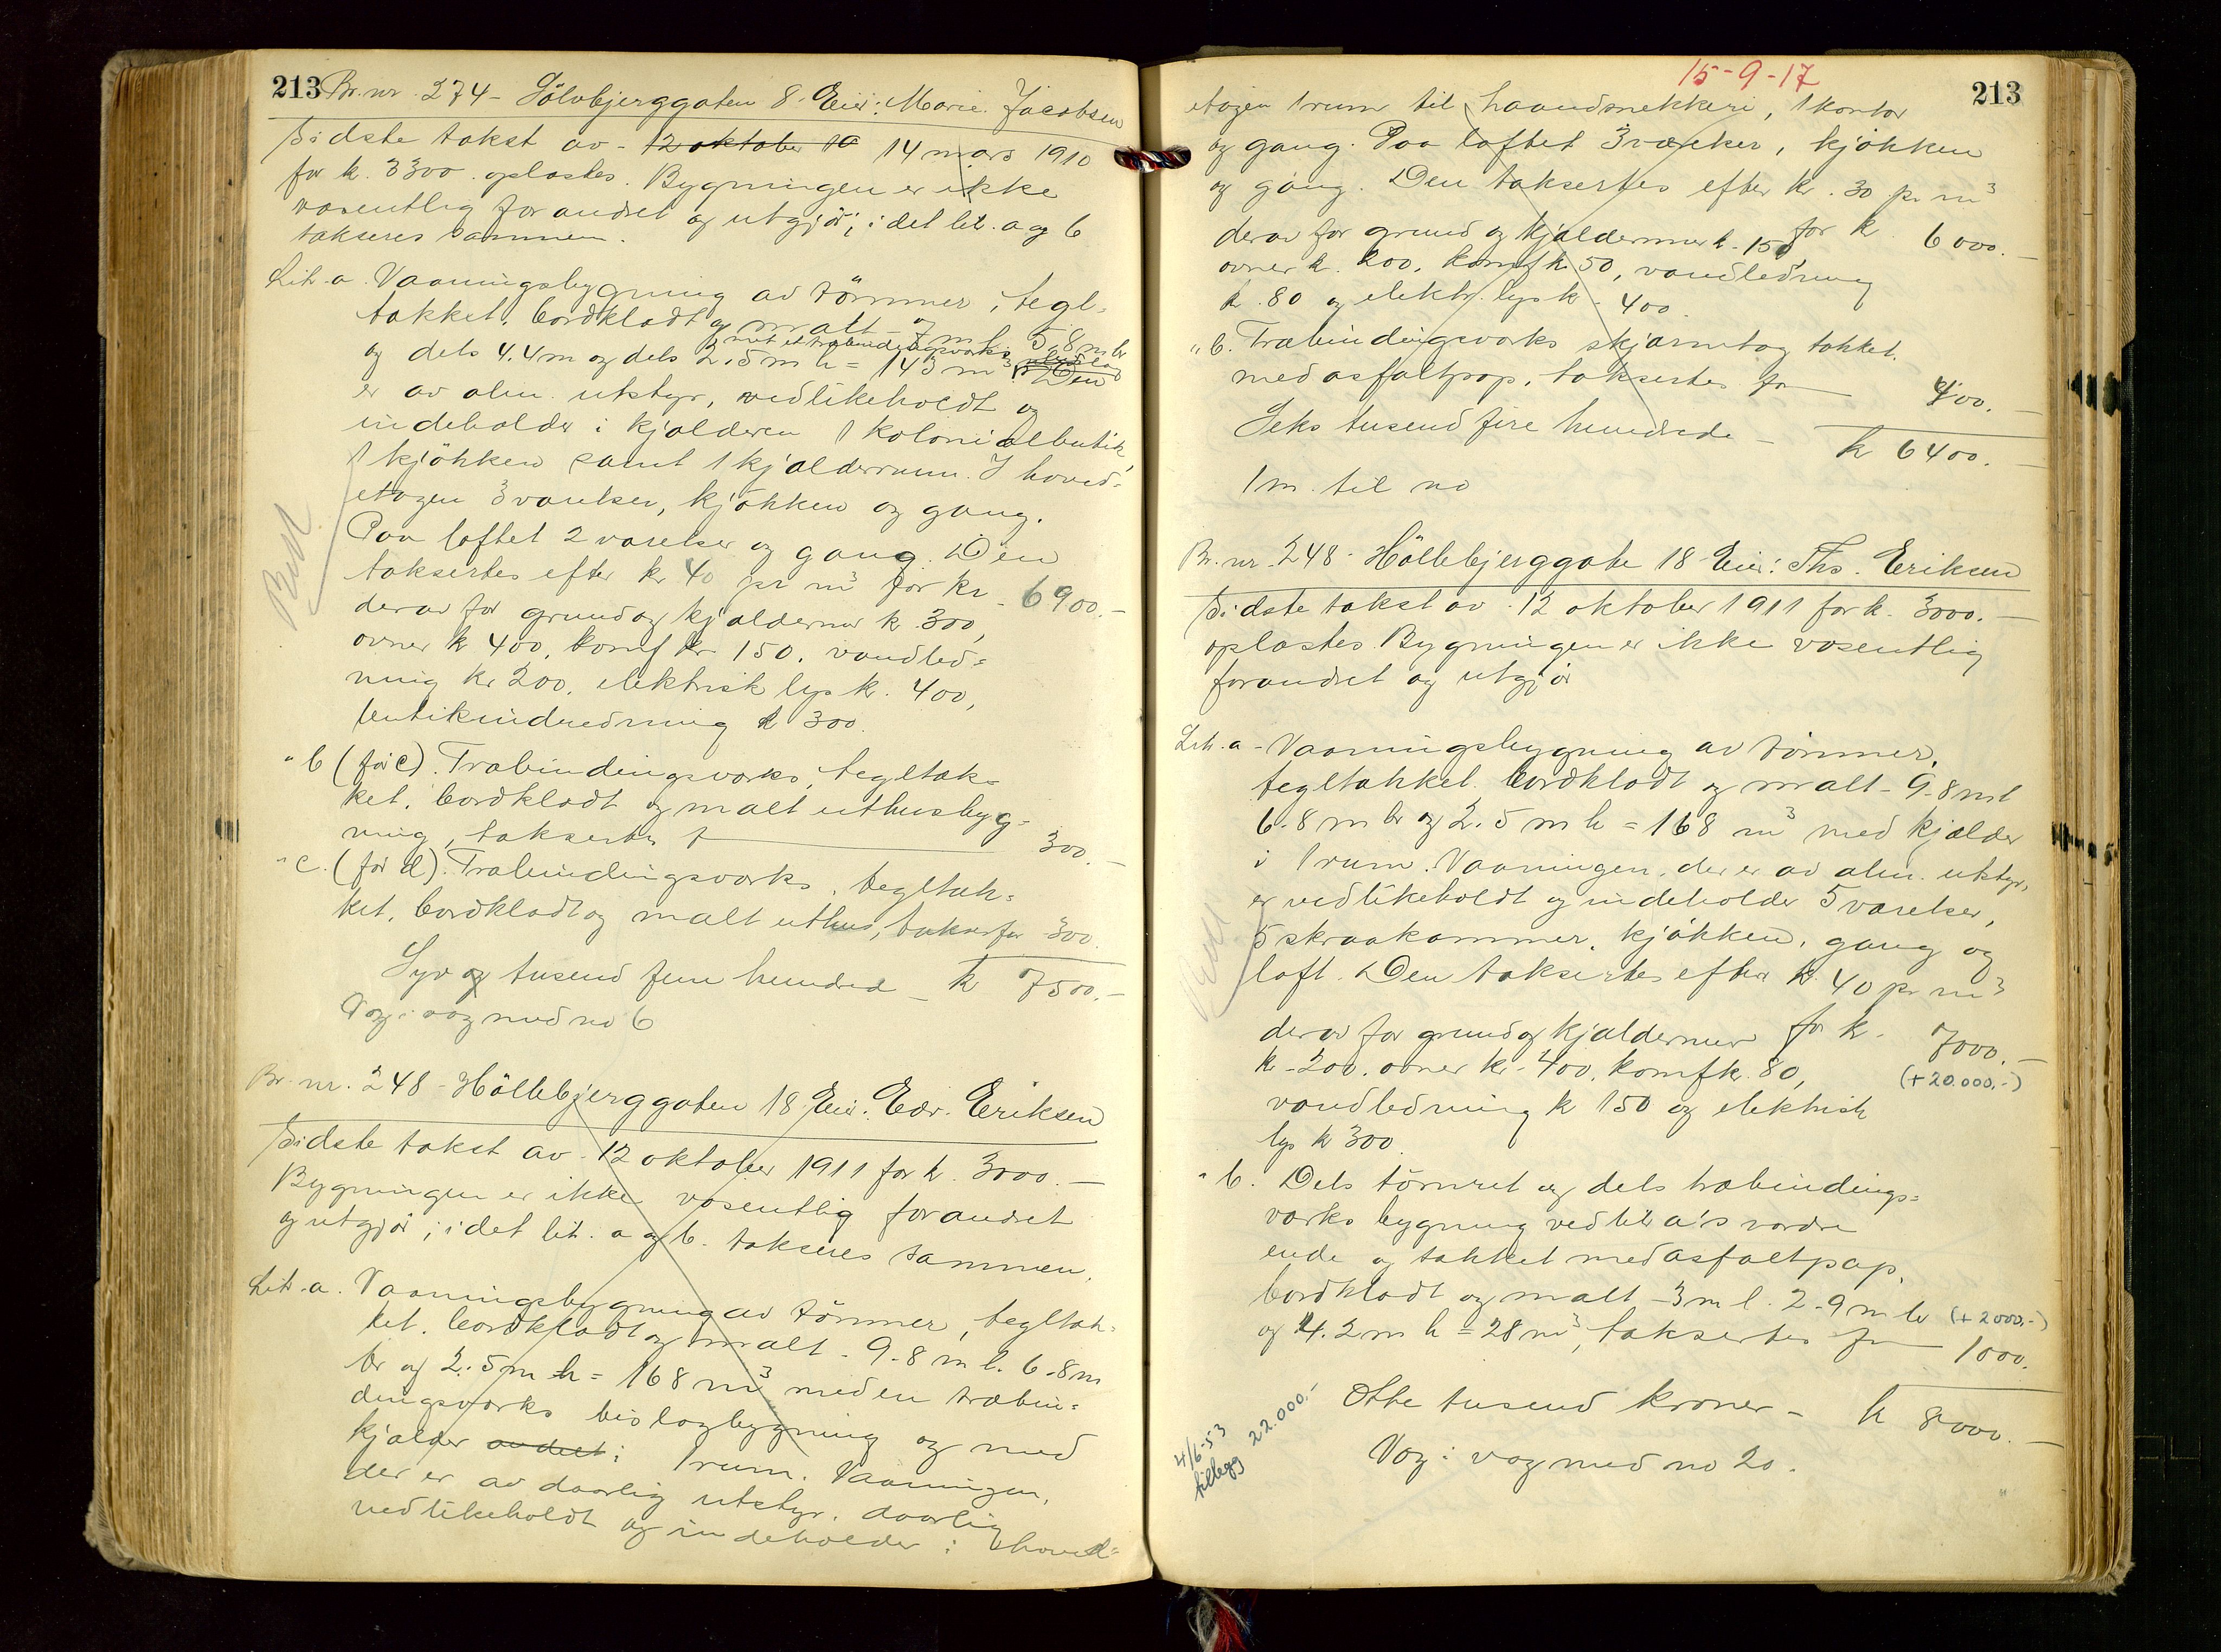 213 Br. nr. 274 - Sölvbjerggaten 8. Eier: Marie Jacobsen
Sidste takst av - 12 oktober 10 14 mars 1910
for k. 3300. oplæstes. Bygningen er ikke
væsentlig forandret og utgjør; idet lit. a og b
takseres sammen.
Lit. a. Vaaningsbygning av tömmer, tegl-
tækket, bordklædt og malt - 7 m l 5.8 m br
og dels 4.4 m og dels 2.5 m h = 143 m³ Den
er av alm. utstyr, vedlikeholdt og
indeholder i kjælderen 1 kolonialbutik,
1 kjökken samt 1 kjælderrum. I hoved-
etagen 3 værelser, kjökken og gang.
Paa loftet 2 værelser og gang. Den
taksertes efter kr 40 pr m³ for kr. 6900.-
derav for grund og kjældermur k 300,
ovner k 400, komf kr 150. vandled=
ning kr 200, elektrisk lys k. 400,
butikindredning k 300.
" b (før c). Træbindingsværks, tegltæk=
ket, bordklædt og malt uthusbyg=
ning, taksertes f 300.-
" c. (før d). Træbindingsværks, tegltæk=
ket, bordklædt og malt uthus, takser for 300.
Syv og tusend fem hundrede - k 7500.-
Væg i væg med no 6
Br. nr. 248 - Höllebjerggaten 18 Eier: Edv. Eriksen
Sidste takst av - 12 oktober 1911 for k. 3000.-
Bygningen er ikke væsentlig forandret
og utgjør; idet lit. a og b. takseres sammen.
Lit. a. Vaaningsbygning av tömmer, tegltæk-
ket. bordklædt og malt - 9.8 m l. 6.8 m
br og 2.5 m h = 168 m³ med en træbin=
dingsværks bislagbygning og med
kjælder avdelt i 1 rum. Vaaningen,
der er av daarlig utstyr, daarlig
vedlikeholdt og indeholder i hoved=
Bet.
15-9-17
213
etagen 1 rum til haandsnekkeri, 1 kontor
og gang. Paa loftet 3 værelser, kjökken
og gang. Den taksertes efter kr. 30 pr m³
for k 6000.-
derav for grund og kjældermur k. 150,
ovner k. 200, komf k 50, vandledning
k. 80 og elektr. lys k. 400.
" b. Træbindingsværks skjærmtag tækket
med asfaltpap, taksertes for 400.-
Seks tusend fire hundrede - k 6400.-
1 m. til no
Br. nr. 248 - Höllebjerggate 18 Eier: Ths. Eriksen
Sidste takst av - 12 oktober 1911 for k. 3000.-
oplæstes Bygningen er ikke væsentlig
forandret og utgjør
Lit. a - Vaaningsbygning av tömmer,
tegltækket. bordklædt og malt - 9.8 m l
6.8 m br og 2.5 m h = 168 m³ med kjælder
i 1 rum. Vaaningen, der er av alm. utstyr,
er vedlikeholdt og indeholder 5 værelser,
5 skraakammer, kjökken, gang og
loft. Den taksertes efter k. 40 pr m³
for k. 7000.-
derav for grund og kjældermur
k. 200. ovner kr. 400, komf k. 80, (+20.000.-)
vandledning k 150 og elektrisk
lys k 300.
" b. Dels tömret og dels træbindings=
værks bygning ved lit a's nordre
ende og tækket med asfaltpap,
bordklædt og malt - 3 m l. 2.9 m br (+2000.-)
og 4.2 m h = 28 m³, taksertes for 1000.
Otte tusend kroner - k 8000.-
Væg i væg med no 20.
4/6-53
tillegg 22.000.-